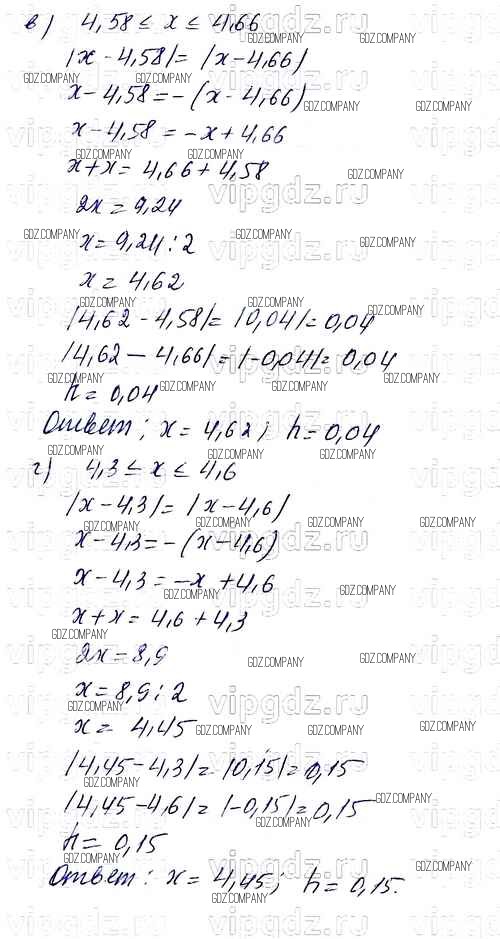 в) 4,58 ≤ x ≤ 4,66
|x - 4,58| = |x - 4,66|
x - 4,58 = - (x - 4,66)
x - 4,58 = - x + 4,66
x + x = 4,66 + 4,58
2x = 9,24
x = 9,24 : 2
x = 4,62
|4,62 - 4,58| = |0,04| = 0,04
|4,62 - 4,66| = |-0,04| = 0,04
h = 0,04
Ответ; x = 4,62; h = 0,04
г) 4,3 ≤ x ≤ 4,6
|x - 4,3| = |x - 4,6|
x - 4,3 = - (x - 4,6)
x - 4,3 = - x + 4,6
x + x = 4,6 + 4,3
2x = 8,9
x = 8,9 : 2
x = 4,45
|4,45 - 4,3| = |0,15| = 0,15
|4,45 - 4,6| = |-0,15| = 0,15
h = 0,15
Ответ: x = 4,45; h = 0,15.